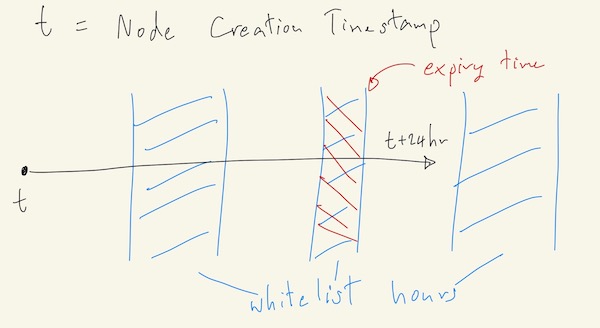 t = Node Creation Timestamp
expiry time
t+24hr
t
whitelist hours